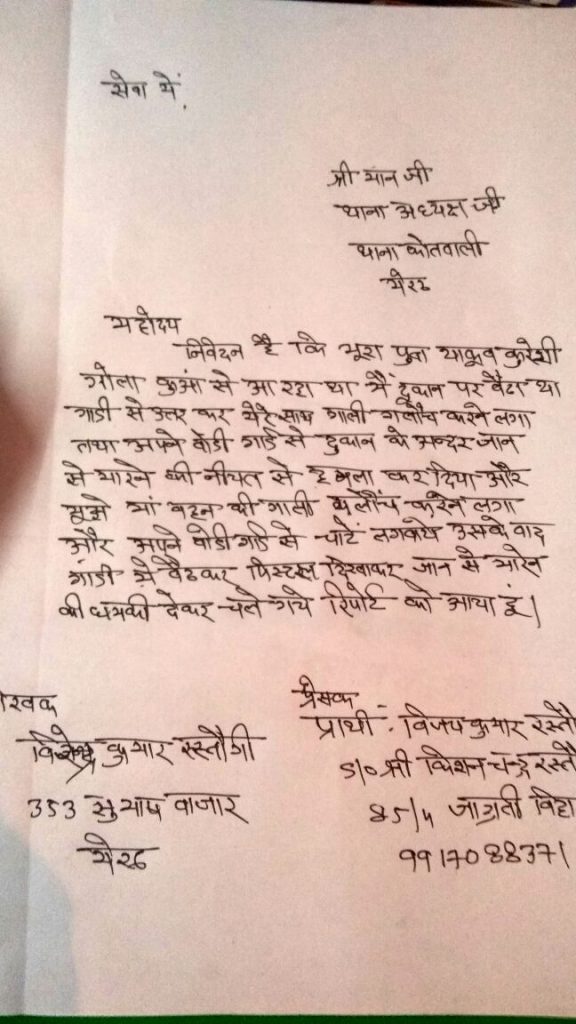 सेवा में,
श्री मान जी
थाना अध्यक्ष जी
थाना कोतवाली
मेरठ
महोदय
निवेदन है कि भूरा पुत्र याकूब कुरेशी
गोला कुआं से आ रहा था मैं दुकान पर बैठा था
गाडी से उतर कर मेरे साथ गाली गलौंच करने लगा
तथा अपने बोडी गार्ड से दुकान के अन्दर जान
से मारने की नीयत से हमला कर दिया और
मुझे मां बहन की गाली गलौंच करने लगा
और अपने बोडी गार्ड से चाटें लगवाये उसके बाद
गाडी में बैठकर पिस्टल दिखाकर जान से मारने
की धमकी देकर चले गये रिपोर्ट को आया हूं।
लेखक
कुमार रस्तौगी
353 सुभाष बाजार
मेरठ
प्रेसक
प्रार्थी :- विजय कुमार रस्तौ
S/o श्री किशन चन्द्र रस्तौ
85/4 जाग्रती विहा
9917088371